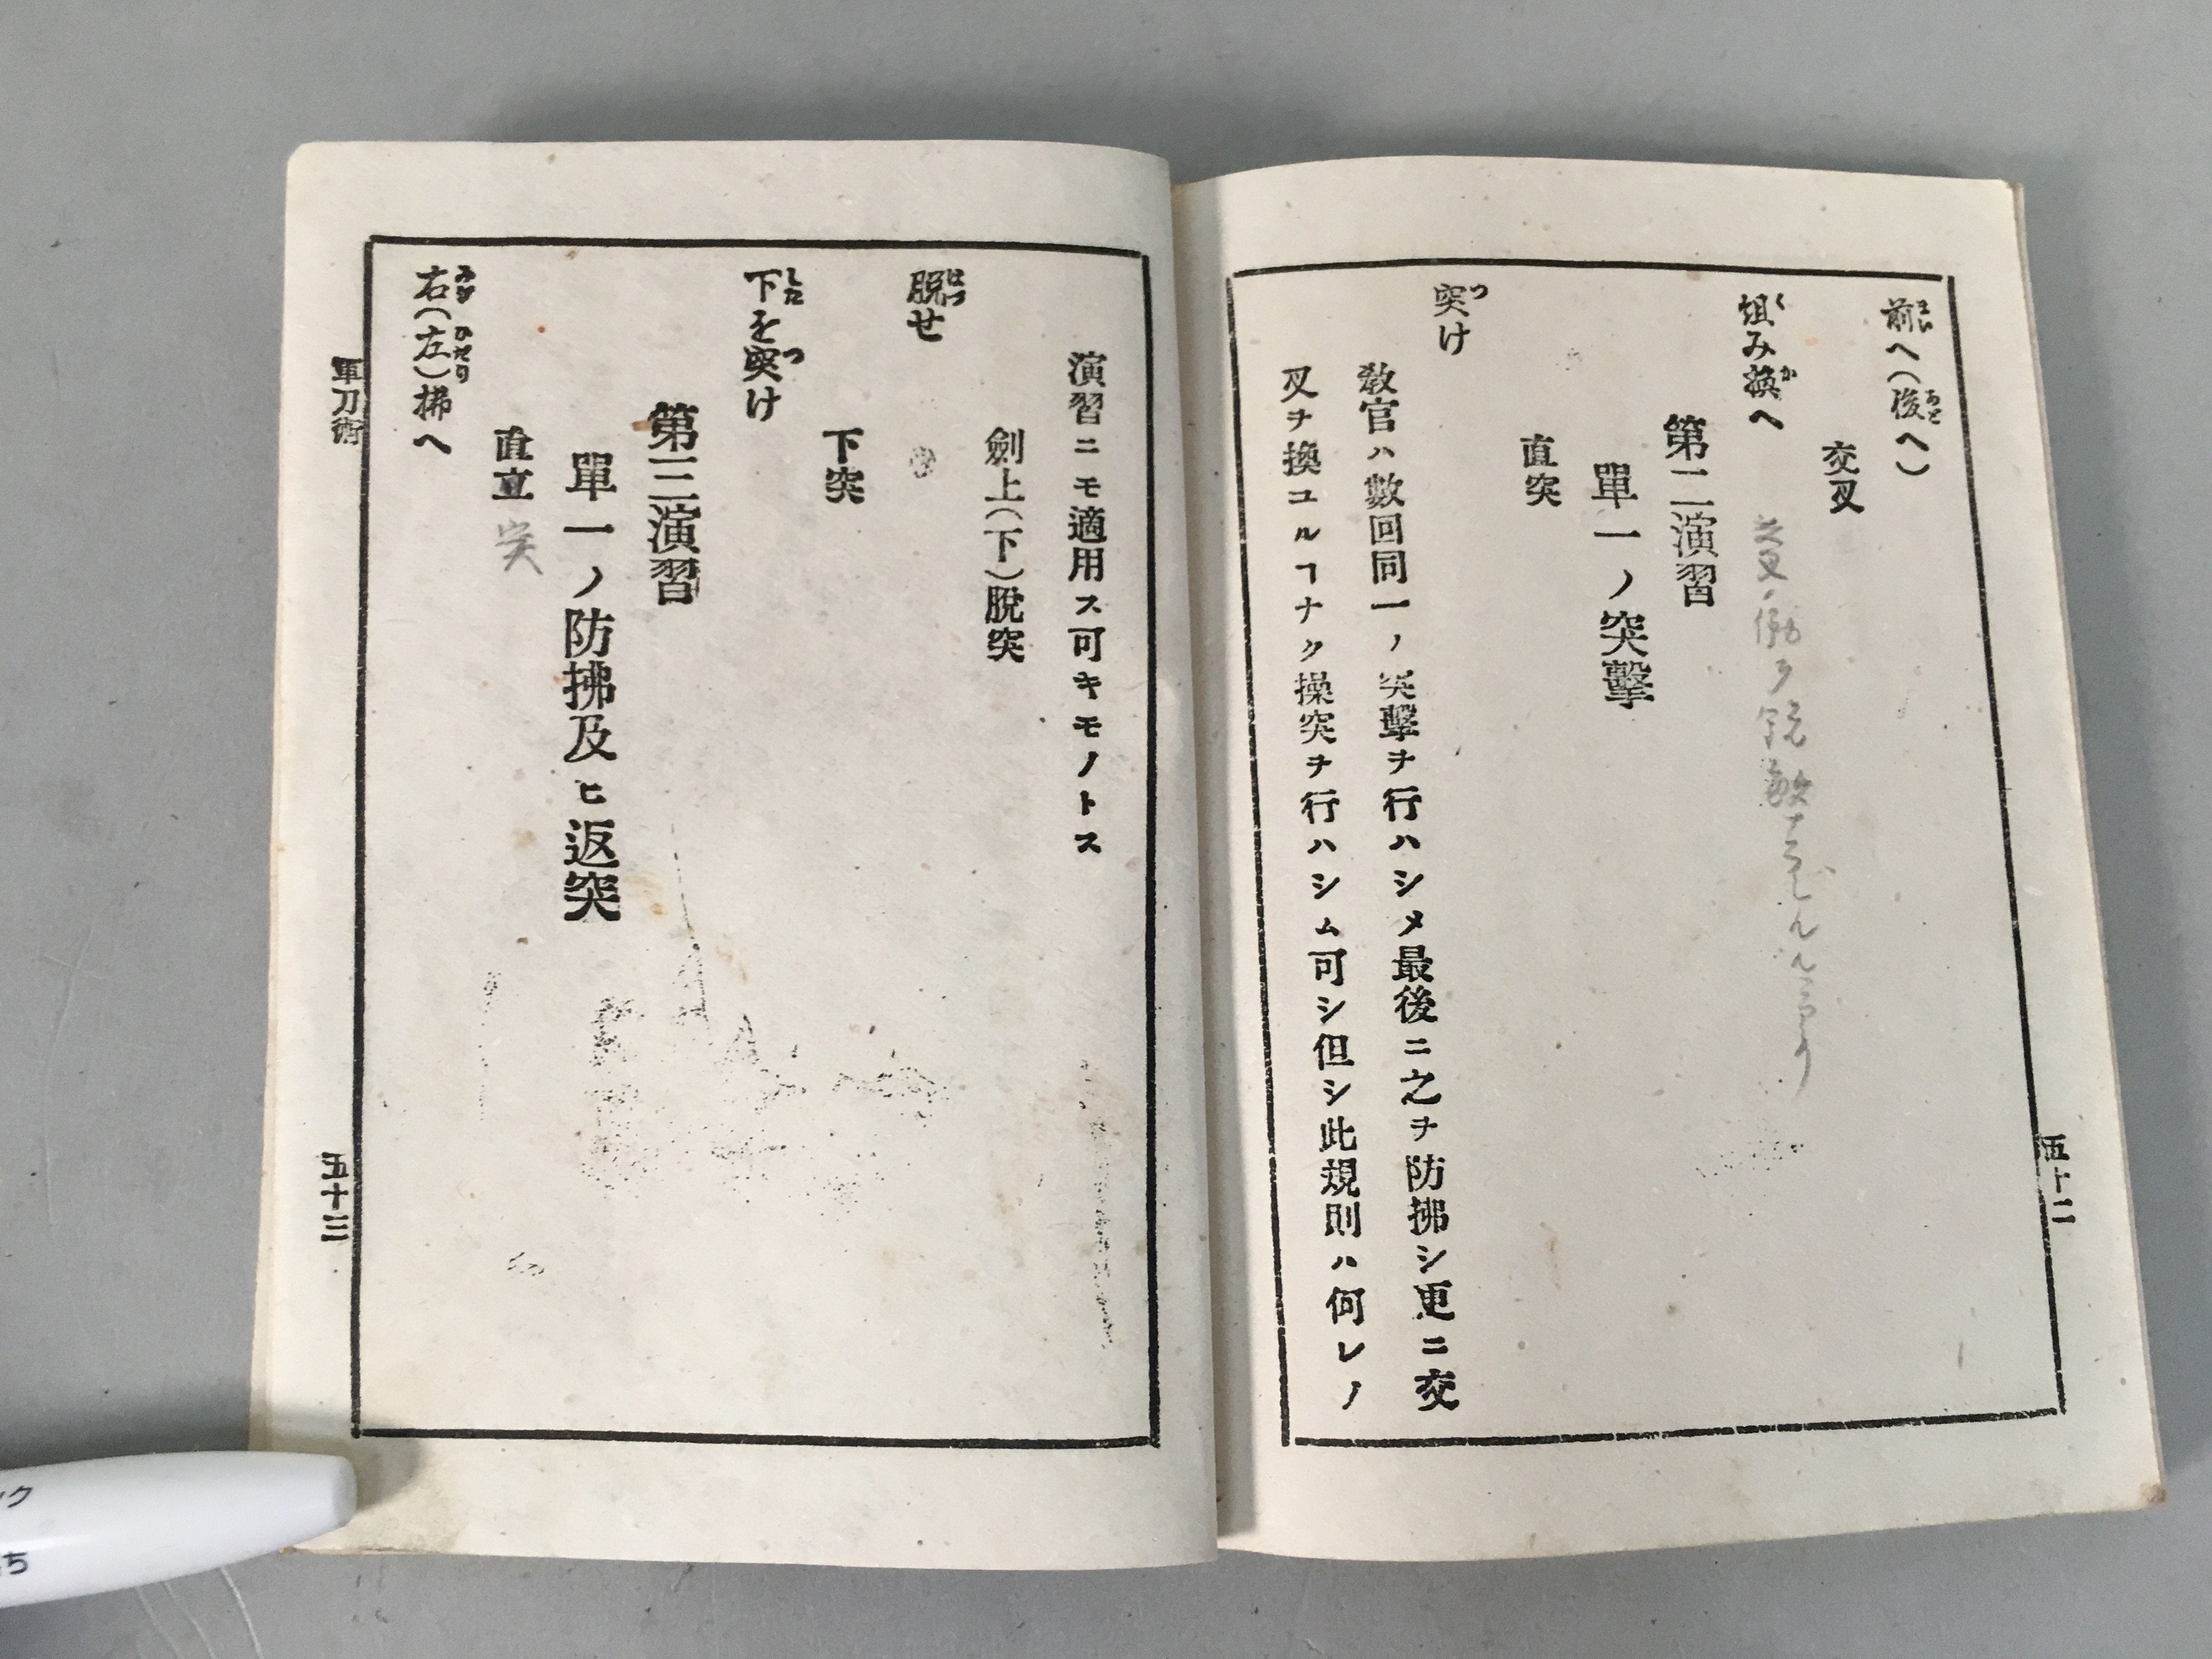 前へ(後へ)
交叉
爼み換へ
第二演習
單一ノ突擊
直突
突け
敎官ハ數回同一ノ突擊ヲ行ハシメ最後ニ之ヲ防拂シ更ニ交
叉ヲ換ユルヿナク操突ヲ行ハシム可シ但シ此規則ハ何レノ
五十二
演習ニモ適用ス可キモノトス
劍上(下)脫突
脫せ
下突
下を突け
第三演習
單一ノ防拂及ヒ返突
直立 突
右(左)拂へ
軍刀術
五十三